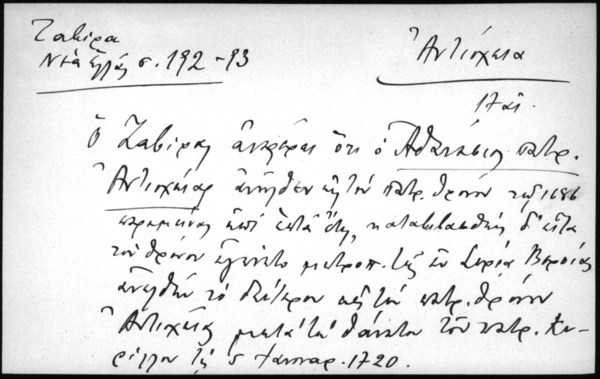 Ζαβίρα
Νέα Ἑλλάς σ. 192-93
Ἀντιόχεια
17 αἰ.
Ὁ Ζαβίρας ἀναφέρει ὅτι ὁ Ἀθανάσιος πατρ.
Ἀντιοχείας ἀνῆλθεν εἰς τὸν πατρ. θρόνον τῷ 1686
παραμείνας ἐπὶ ἑπτὰ ἔτη, καταβιβασθεὶς δ' εἶτα
τοῦ θρόνου ἐγένετο μητροπ. τῆς ἐν Συρίᾳ Βεροίας
ἀνελθὼν τὸ δεύτερον εἰς τὸν πατρ. θρόνον
Ἀντιοχείας μετὰ τὸν θάνατον τοῦ πατρ. Κυ-
ρίλλου τῇ 5 Ἰανουαρ. 1720.